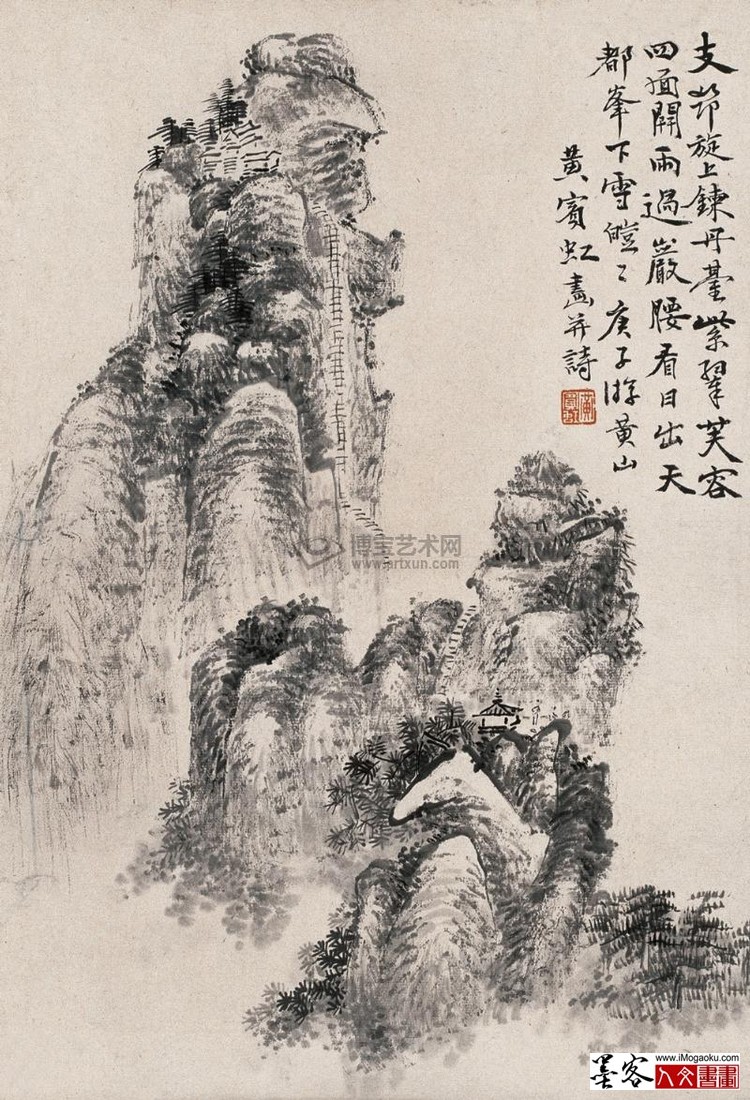 支筇旋上鍊丹臺紫翠芙容
四面開雨過巖腰看日出天
都峯下雪皚〻庚子游黄山
黄賓虹畫并詩
博宝艺术网
www.artxun.com
www.iMogaoku.com
墨客人文書畫